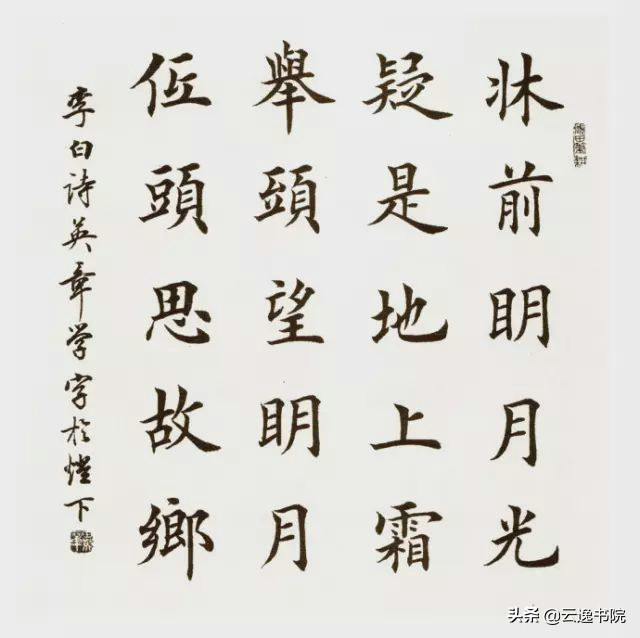 牀前眀月光
疑是地上霜
舉頭望眀月
低頭思故鄉
李白詩英章学字於燈下
头条 @云逸书院